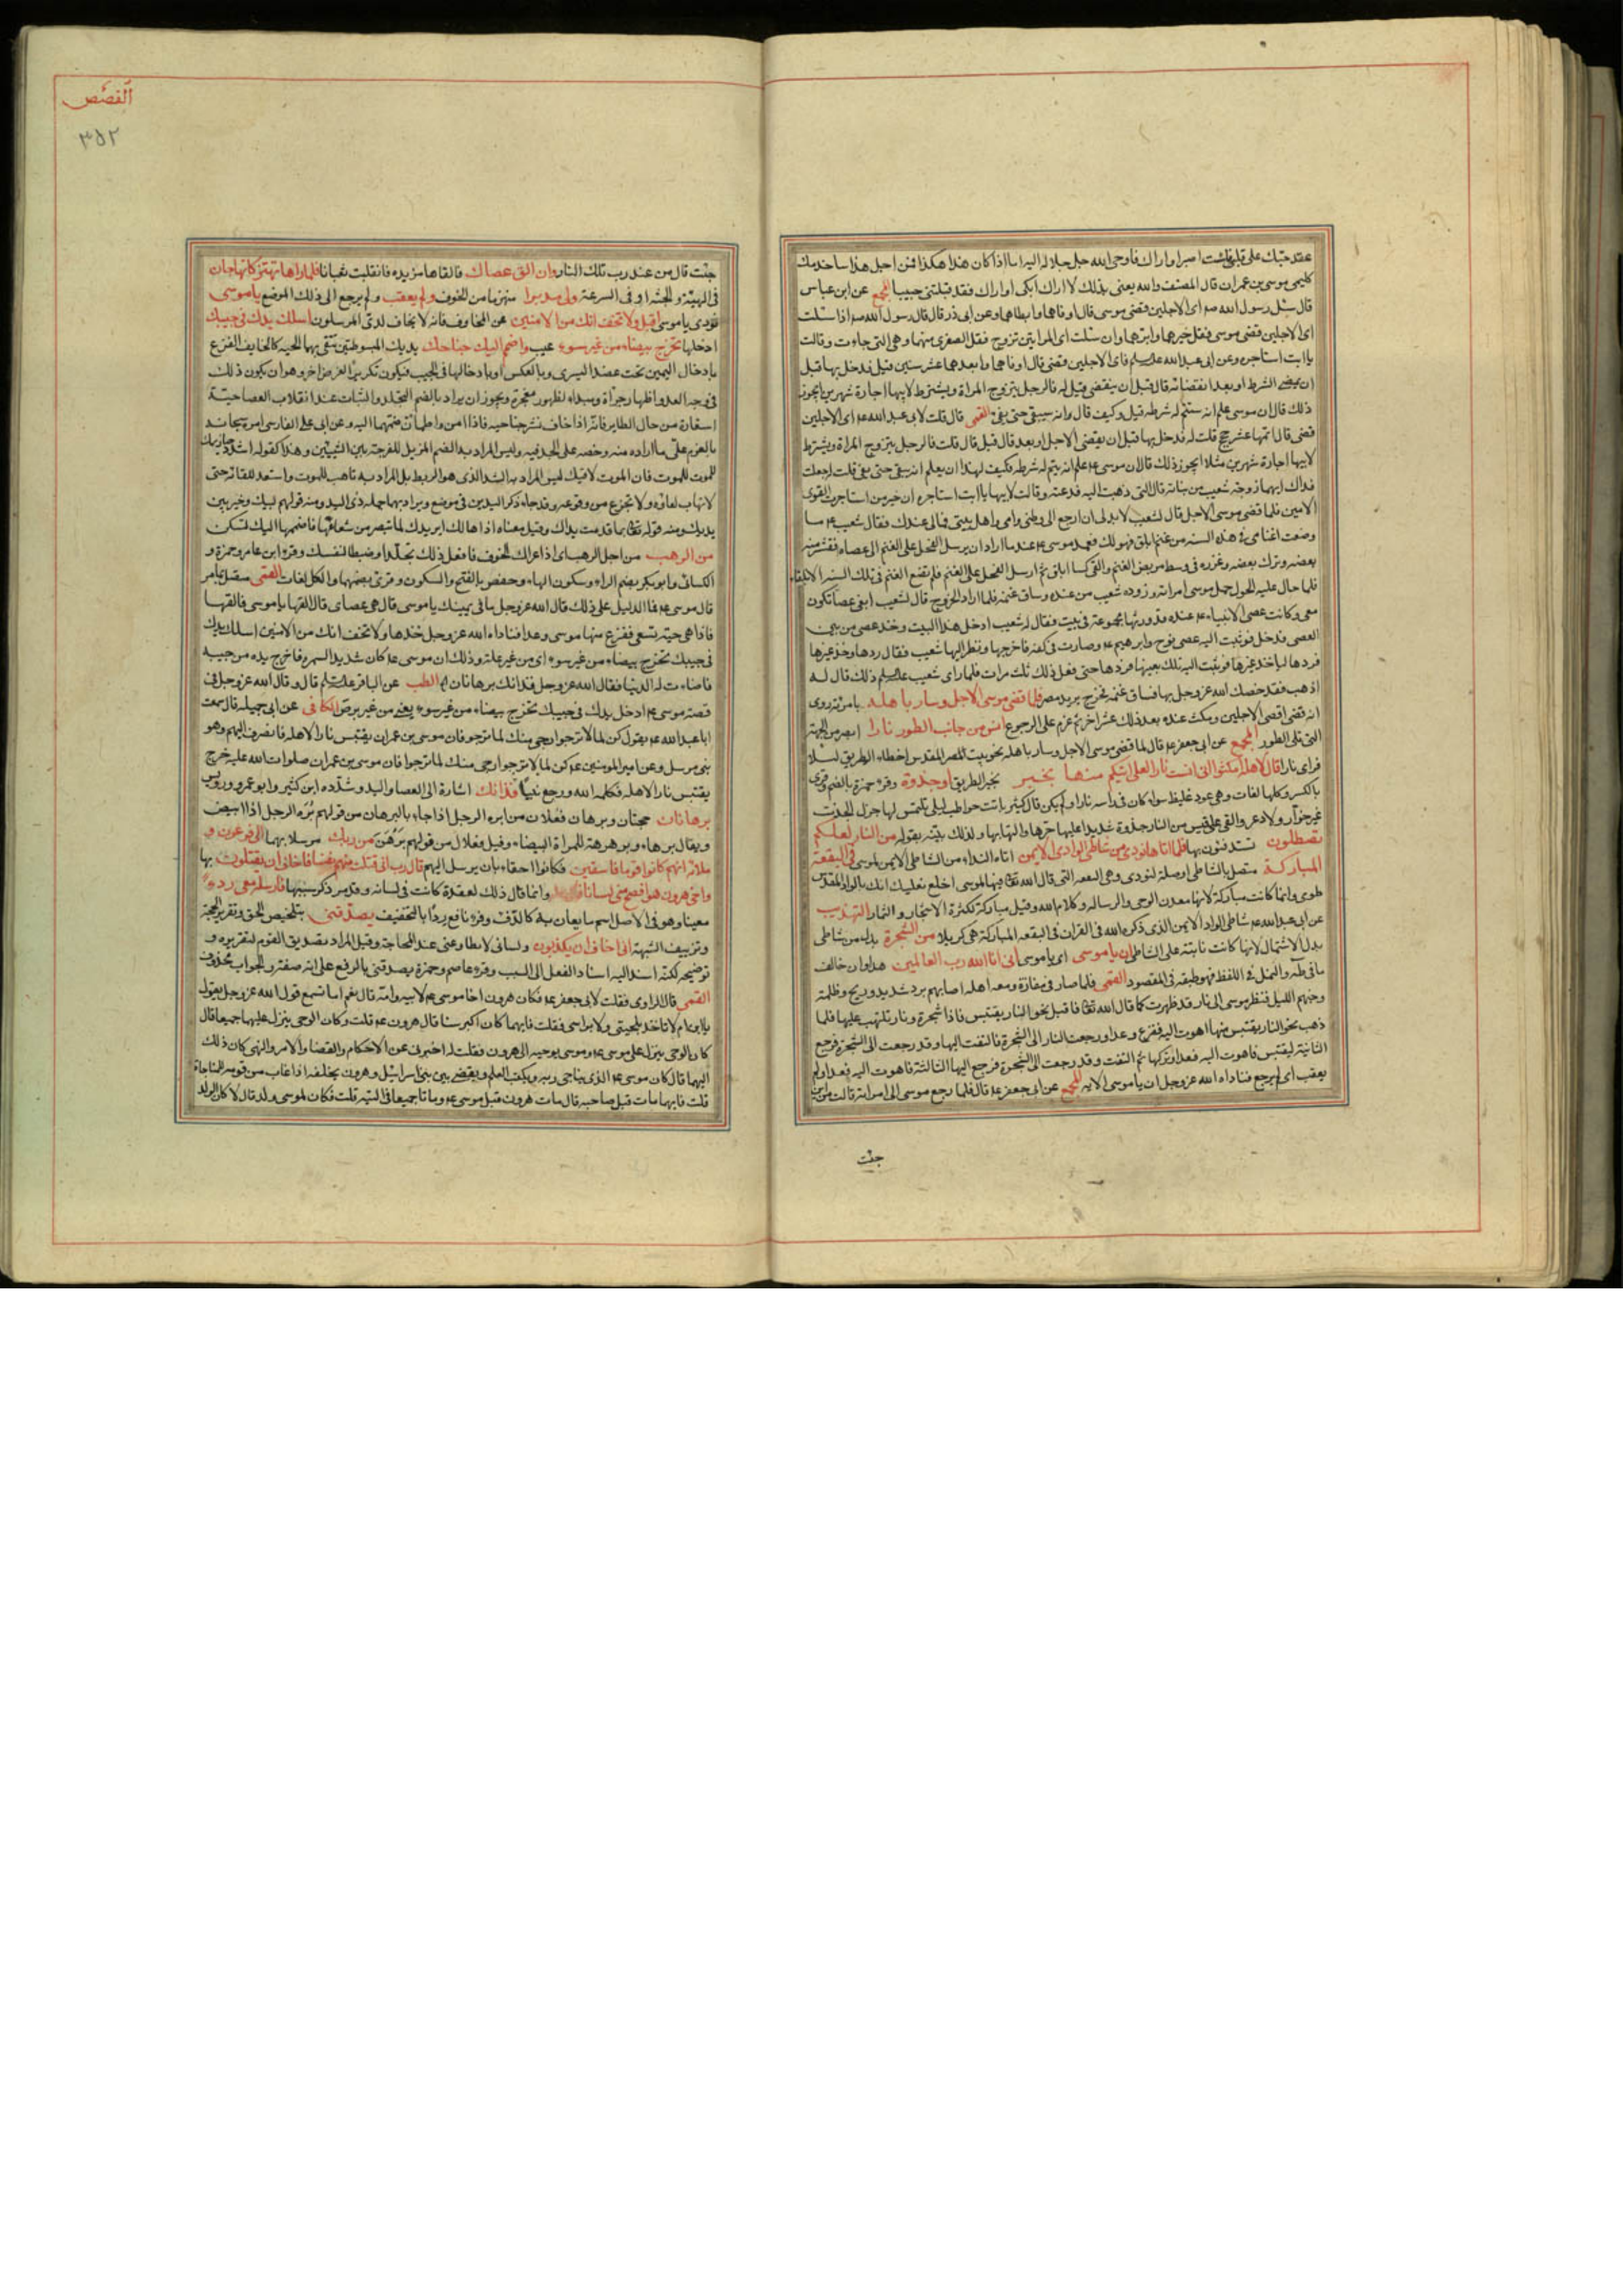 عقد حبّك على قلبى فلست اصبر او اراك فاوحى الله جل جلاله اليه اما اذا كان هذا هكذا فمن اجل هذا ساخدمك
كليمى موسى بن عمران قال المصنف والله يعنى بذلك لا ازال ابكى او اراك فقد قبلتنى حبيبا المجمع عن ابن عباس
قال سئل رسول الله صم اى الاجلين قضى موسى قال اوفاهما وابطاهما وعن ابى ذر قال قال رسول الله صم اذا سئلت
اى الاجلين قضى موسى فقل خيرهما وابرهما وان سئلت اى المراتين تزوج فقل الصغرى منهما وهى التى جاءت وقالت
يا ابت استاجره وعن ابى عبد الله عليه السلم قال اى الاجلين قضى قال اوفاهما وابعدهما عشر سنين قيل فدخل بها قبل
ان يمضى الشرط او بعد انقضائه قال قبل ان ينقضى قيل له فالرجل يتزوج المراة ويشترط لابيها اجارة شهرين ايجوز
ذلك قال ان موسى علم انه ستتم له شرطه قيل وكيف قال وانه سيبقى حتى يفى القمى قال قلت لابى عبد الله عم اى الاجلين
قضى قال اتمها عشر حجج قلت له فدخل بها قبل ان يقضى الاجل او بعد قال قبل قال قلت فالرجل يتزوج المراة ويشترط
لابيها اجارة شهرين مثلا ايجوز ذلك قال ان موسى عم علم انه يتم له شرطه فكيف لهذا ان يعلم انه يبقى حتى يفى قلت له جعلت
فداك ايهما زوجته شعيب من بناته قال التى ذهبت اليه فدعته وقالت لابيها يا ابت استاجره ان خير من استاجرت القوى
الامين فلما قضى موسى الاجل قال لشعيب لابد لى ان ارجع الى وطنى وامى واهل بيتى فمالى عندك فقال شعيب عم ما
وضعت اغنامى فى هذه السنة من غنم ابلق فهو لك فعمد موسى عم عند ما اراد ان يرسل الفحل على الغنم الى عصاه فقشر منه
بعضه وترك بعضه وغرزه فى وسط مربض الغنم والقى كسا ابلق ثم ارسل الفحل على الغنم فلم تضع الغنم فى تلك السنه الا بلقا
فلما حال عليه الحول حمل موسى امراته وزوده شعيب من عنده وساق غنمه فلما اراد الخروج قال لشعيب ابغى عصا تكون
معى وكانت عصى الانبياء عم عنده قد ورثها مجموعة فى بيت فقال له شعيب ادخل هذا البيت وخذ عصى من بين
العصى فدخل فوثبت اليه عصى نوح وابرهيم عم وصارت فى كفه فاخرجها ونظر اليها شعيب فقال ردها وخذ غيرها
فردها لياخذ غيرها فوثبت اليه تلك بعينها فردها حتى فعل ذلك ثلث مرات فلما راى شعيب عليه السلم ذلك قال له
اذهب فقد خصك الله عز وجل بها فساق غنمه فخرج يريد مصر فلما قضى موسى الاجل وسار باهله بامرته روى
انه قضى اقصى الاجلين ومكث عنده بعد ذلك عشرا اخر ثم عزم على الرجوع انس من جانب الطور نارا ابصر من الجهة
التى تلى الطور المجمع عن ابى جعفر عم قال لما قضى موسى الاجل وسار باهله نحو بيت المقدس اخطاء الطريق ليلا
فراى نارا قال لاهله امكثوا انى انست نارا لعلى اتيكم منها بخبر بخبر الطريق او جذوة وقرء حمزة بالضم وقرئ
بالكسر وكلها لغات وهى عود غليظ سواء كان فى راسه نارا ولم يكن قال كثير باتت حواطب ليلى يلتمس لها جزل الجذى
غير خوار ولا دعر والقى على قبس من النار جذوة شديدا عليها حرها والتهابها ولذلك بيّنه بقوله من النار لعلكم
تصطلون تستدفئون بها فلما اتاها نودى من شاطئ الوادى الايمن اتاه النداء من الشاطئ الايمن لموسى فى البقعة
المباركة متصل بالشاطئ او صلة لنودى وهى البقعه التى قال الله تعم فيها لموسى اخلع نعليك انك بالواد المقدس
طوى وانما كانت مباركة لانها معدن الوحى والرساله وكلام الله وقيل مباركة لكثرة الاشجار و الثمار التهذيب
عن ابى عبد الله عم شاطئ الواد الايمن الذى ذكره الله فى القران فى البقعه المباركة هى كربلا من الشجرة بدل من شاطئ
بدل الاشتمال لانها كانت نابتة على الشاطئ ان يا موسى اى يا موسى انى انا الله رب العالمين هذا وان خالف
ما فى طه والنمل فى اللفظ فهو طبقه فى المقصود القمى فلما صار فى مفازة ومعه اهله اصابهم برد شديد وريح وظلمة
وجنهم الليل فنظر موسى الى نار قد ظهرت كما قال الله تعم فاقبل نحو النار يقتبس فاذا شجرة ونار تلتهب عليها فلما
ذهب نحو النار يقتبس منها اهوت اليه ففزع وعدا ورجعت النار الى الشجرة فالتفت اليها وقد رجعت الى الشجرة فرجع
الثانية ليقتبس فاهوت اليه فعدا وتركها ثم التفت وقد رجعت الى الشجرة فرجع اليها الثالثة فاهوت اليه فعدا ولم
يعقب اى لم يرجع فناداه الله عز وجل ان يا موسى الايه المجمع عن ابى جعفر عم قال فلما رجع موسى الى امراته قالت من اين
جئت
القصص
٣٥٢
جئت قال من عند رب تلك النار وان الق عصاك فالقاها من يده فانقلبت ثعبانا فلما راها تهتز كانها جان
فى الهيئة والجثه او فى السرعة ولى مدبرا منهزما من الخوف ولم يعقب ولم يرجع الى ذلك الموضع يا موسى
نودى يا موسى اقبل ولا تخف انك من الامنين من المخاوف فانه لا يخاف لدى المرسلون اسلك يدك فى جيبك
ادخلها تخرج بيضاء من غير سوء عيب واضمم اليك جناحك يديك المبسوطتين تتقى بهما الحيه كالخايف الفزع
بادخال اليمين تحت عضد اليسرى وبالعكس او بادخالها فى الجيب فيكون تكريرا لغرض اخر وهو ان يكون ذلك
فى وجه العدو اظهار جراة ومبداء لظهور معجزة ويجوز ان يراد بالضم التجلد والثبات عند انقلاب العصا حية
استعارة من حال الطاير فانه اذا خاف نشر جناحيه فاذا امن واطمان ضمهما اليه وعن ابى على الفارسى امره سبحانه
بالعزم على ما اراده منه وحضه على الجد فيه وليس المراد به الضم المزيل للفرجة بين الشيئين وهذا كقوله اشدد حيازيمك
للموت فان الموت لاقيك ليس المراد به الشد الذى هو الربط بل المراد به تاهب للموت واستعد للقائه حتى
لا تهاب لقاءه ولا تجزع من وقوعه وقد جاء ذكر اليدين فى موضع ويراد بهما جمله ذى اليد ومنه قولهم لبيك وخير بين
يديك ومنه قوله تعم بما قدمت يداك وقيل معناه اذا هالك امر يدك لما تبصر من شعاعها فاضممها اليك لتسكن
من الرهب من اجل الرهب اى اذا عراك الخوف فافعل ذلك تجلدا وضبطا لنفسك وقرء ابن عامر وحمزة و
الكسائى وابو بكر بضم الراء وسكون الهاء وحفص بالفتح والسكون وقرئ بضمهما والكل لغات القمى
قال موسى عم فما الدليل على ذلك قال الله عز وجل ما فى يمينك يا موسى قال هى عصاى قال القها يا موسى فالقها
فاذا هى حية تسعى ففزع منها موسى وعدا فناداه الله عز وجل خذها ولا تخف انك من الامنين اسلك يدك
فى جيبك تخرج بيضاء من غير سوء اى من غير علة وذلك ان موسى عم كان شديد السمره فاخرج يده من جيبه
فاضاءت له الدنيا فقال الله عز وجل فذانك برهانان الطب عن الباقر عليه السلم قال وقال الله عز وجل فى
قصة موسى عم ادخل يدك فى جيبك تخرج بيضاء من غير سوء يعنى من غير برص الكافى عن ابى جميله قال سمعت
ابا عبد الله عم يقول كن لما لا ترجوا رجى منك لما ترجو فان موسى بن عمران يقتبس نارا لاهله فانصرف اليهم وهو
نبى مرسل وعن امير المومنين عم كن لما لا ترجوا رجى منك لما ترجوا فان موسى بن عمران صلوات الله عليه خرج
يقتبس نارا لاهله فكلمه الله ورجع نبيا فذانك اشارة الى العصا واليد وشدده ابن كثير وابو عمرو ورويس
برهانان حجتان وبرهان فعلان من ابره الرجل اذا جاء بالبرهان من قولهم بَرَه الرجل اذا ابيض
ويقال برهاء وبرهرهة للمراة البيضاء وقيل فعلال من قولهم برهن من ربك مرسلا بهما الى فرعون و
ملائه انهم كانوا قوما فاسقين فكانوا احقاء بان يرسل اليهم قال رب انى قتلت منهم نفسا فاخاف ان يقتلون بها
واخى هرون هو افصح منى لسانا وانما قال ذلك لعقدة كانت فى لسانه وقد مر ذكر سببها فارسله معى ردءًا
معينا وهو فى الاصل اسم ما يعان به كالدفء وقرء نافع ردًا بالتخفيف يصدقنى بتلخيص الحق وتقرير الحجة
وتزييف الشبهة انى اخاف ان يكذبون ولسانى لا يطاوعنى عند المحاجة وقيل المراد تصديق القوم لتقريره و
توضيحه لكنه اسند اليه اسناد الفعل الى السبب وقرء عاصم وحمزة يصدقنى بالرفع على انه صفته والجواب محذوف
القمى قال الراوى فقلت لابى جعفر عم فكان هرون اخا موسى عم لابيه وامه قال نعم اما تسمع قول الله عز وجل يقول
يا ابن ام لا تاخذ بلحيتى ولا براسى فقلت فايهما كان اكبر سنا قال هرون عم قلت وكان الوحى ينزل عليهما جميعا قال
كان الوحى ينزل على موسى عم وموسى يوحيه الى هرون فقلت له اخبرنى عن الاحكام والقضاء والامر والنهى كان ذلك
اليهما قال كان موسى عم الذى يناجى ربه ويكتب العلم ويقضى بين بنى اسرائيل وهرون يخلفه اذا غاب من قومه للمناجاة
قلت فايهما مات قبل صاحبه قال مات هرون قبل موسى عم وماتا جميعا فى التيه قلت فكان لموسى ولد قال لا كان الولد